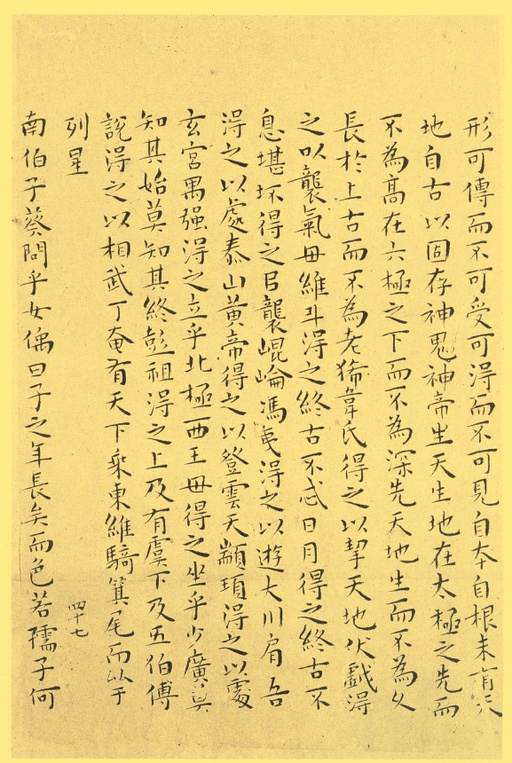 形可傳而不可受可得而不可見自本自根未有天
地自古以固存神鬼神帝生天生地在太極之先而
不為高在六極之下而不為深先天地生而不為久
長於上古而不為老狶韋氏得之以挈天地伏戲得
之以襲氣母維斗得之終古不忒日月得之終古不
息堪坏得之以襲崐崘馮夷得之以遊大川肩吾
得之以處泰山黃帝得之以登雲天顓頊得之以處
玄宮禺强得之立乎北極西王母得之坐乎少廣莫
知其始莫知其終彭祖得之上及有虞下及五伯傅
說得之以相武丁奄有天下乘東維騎箕尾而比于
列星
南伯子葵問乎女偊曰子之年長矣而色若孺子何
四十七